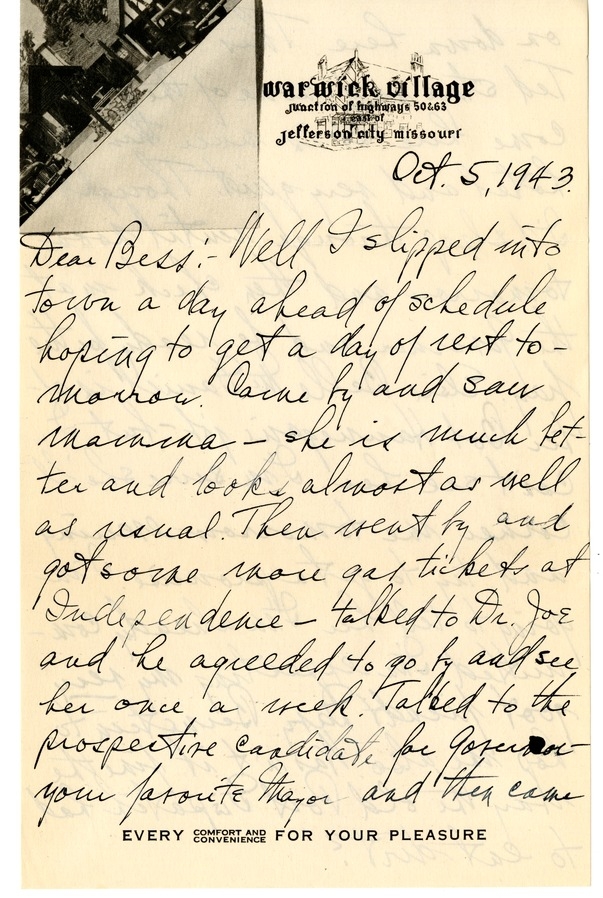 warwick village
junction of highways 50&63
east of
jefferson city missouri
Oct. 5, 1943.
Dear Bess:- Well I slipped into
town a day ahead of schedule
hoping to get a day of rest to-
morrow. Came by and saw
mamma - she is much bet-
ter and looks almost as well
as usual. Then went by and
got some more gas tickets at
Independence - talked to Dr. Joe
and he agreeded to go by and see
her once a week. Talked to the
prospective candidate for Governor
your favorite Mayor and then came
EVERY COMFORT AND CONVENIENCE FOR YOUR PLEASURE